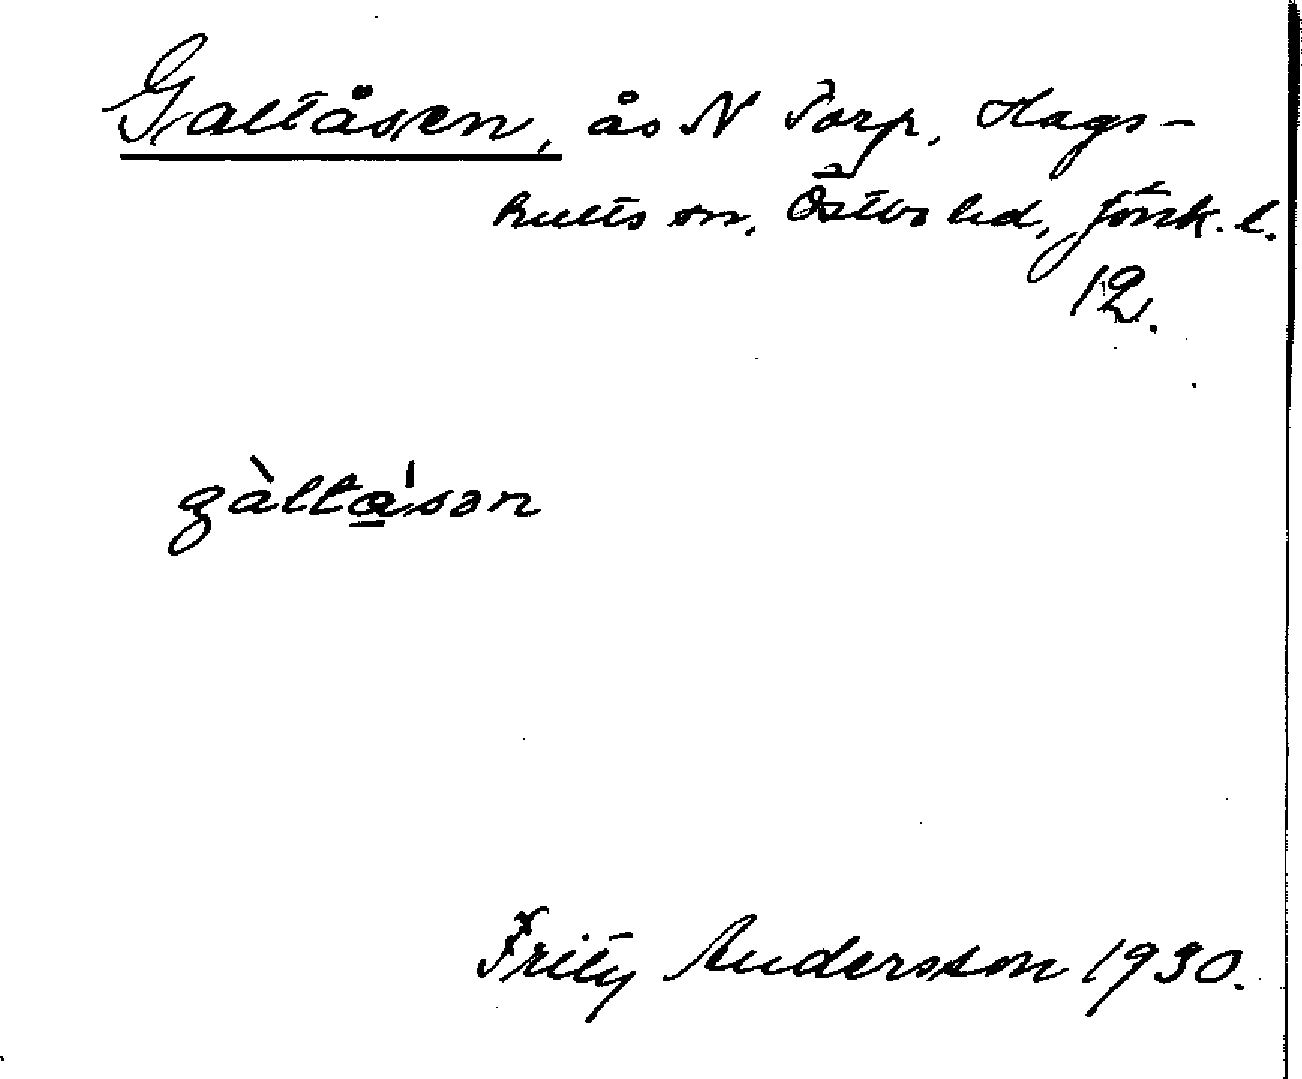 Galtåsen, ås N Torp, Hags-
hults sn, Östbo hd, Jönk. l.
12.
gàlta̲'sən
Fritz Andersson 1930.